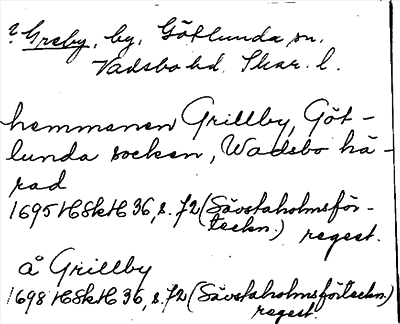 ? Greby, by, Götlunda sn.
Vadsbo hd. Skar. l.
hemmanen Grillby, Göt-
lunda socken, Wadsbo hä-
rad
1695 HSkH 36, s. 72 (Sävstaholmsför-
teckn.) regest.
å Grillby
1698 HSkH 36, s. 72 (Sävstaholmsförteckn.)
regest.